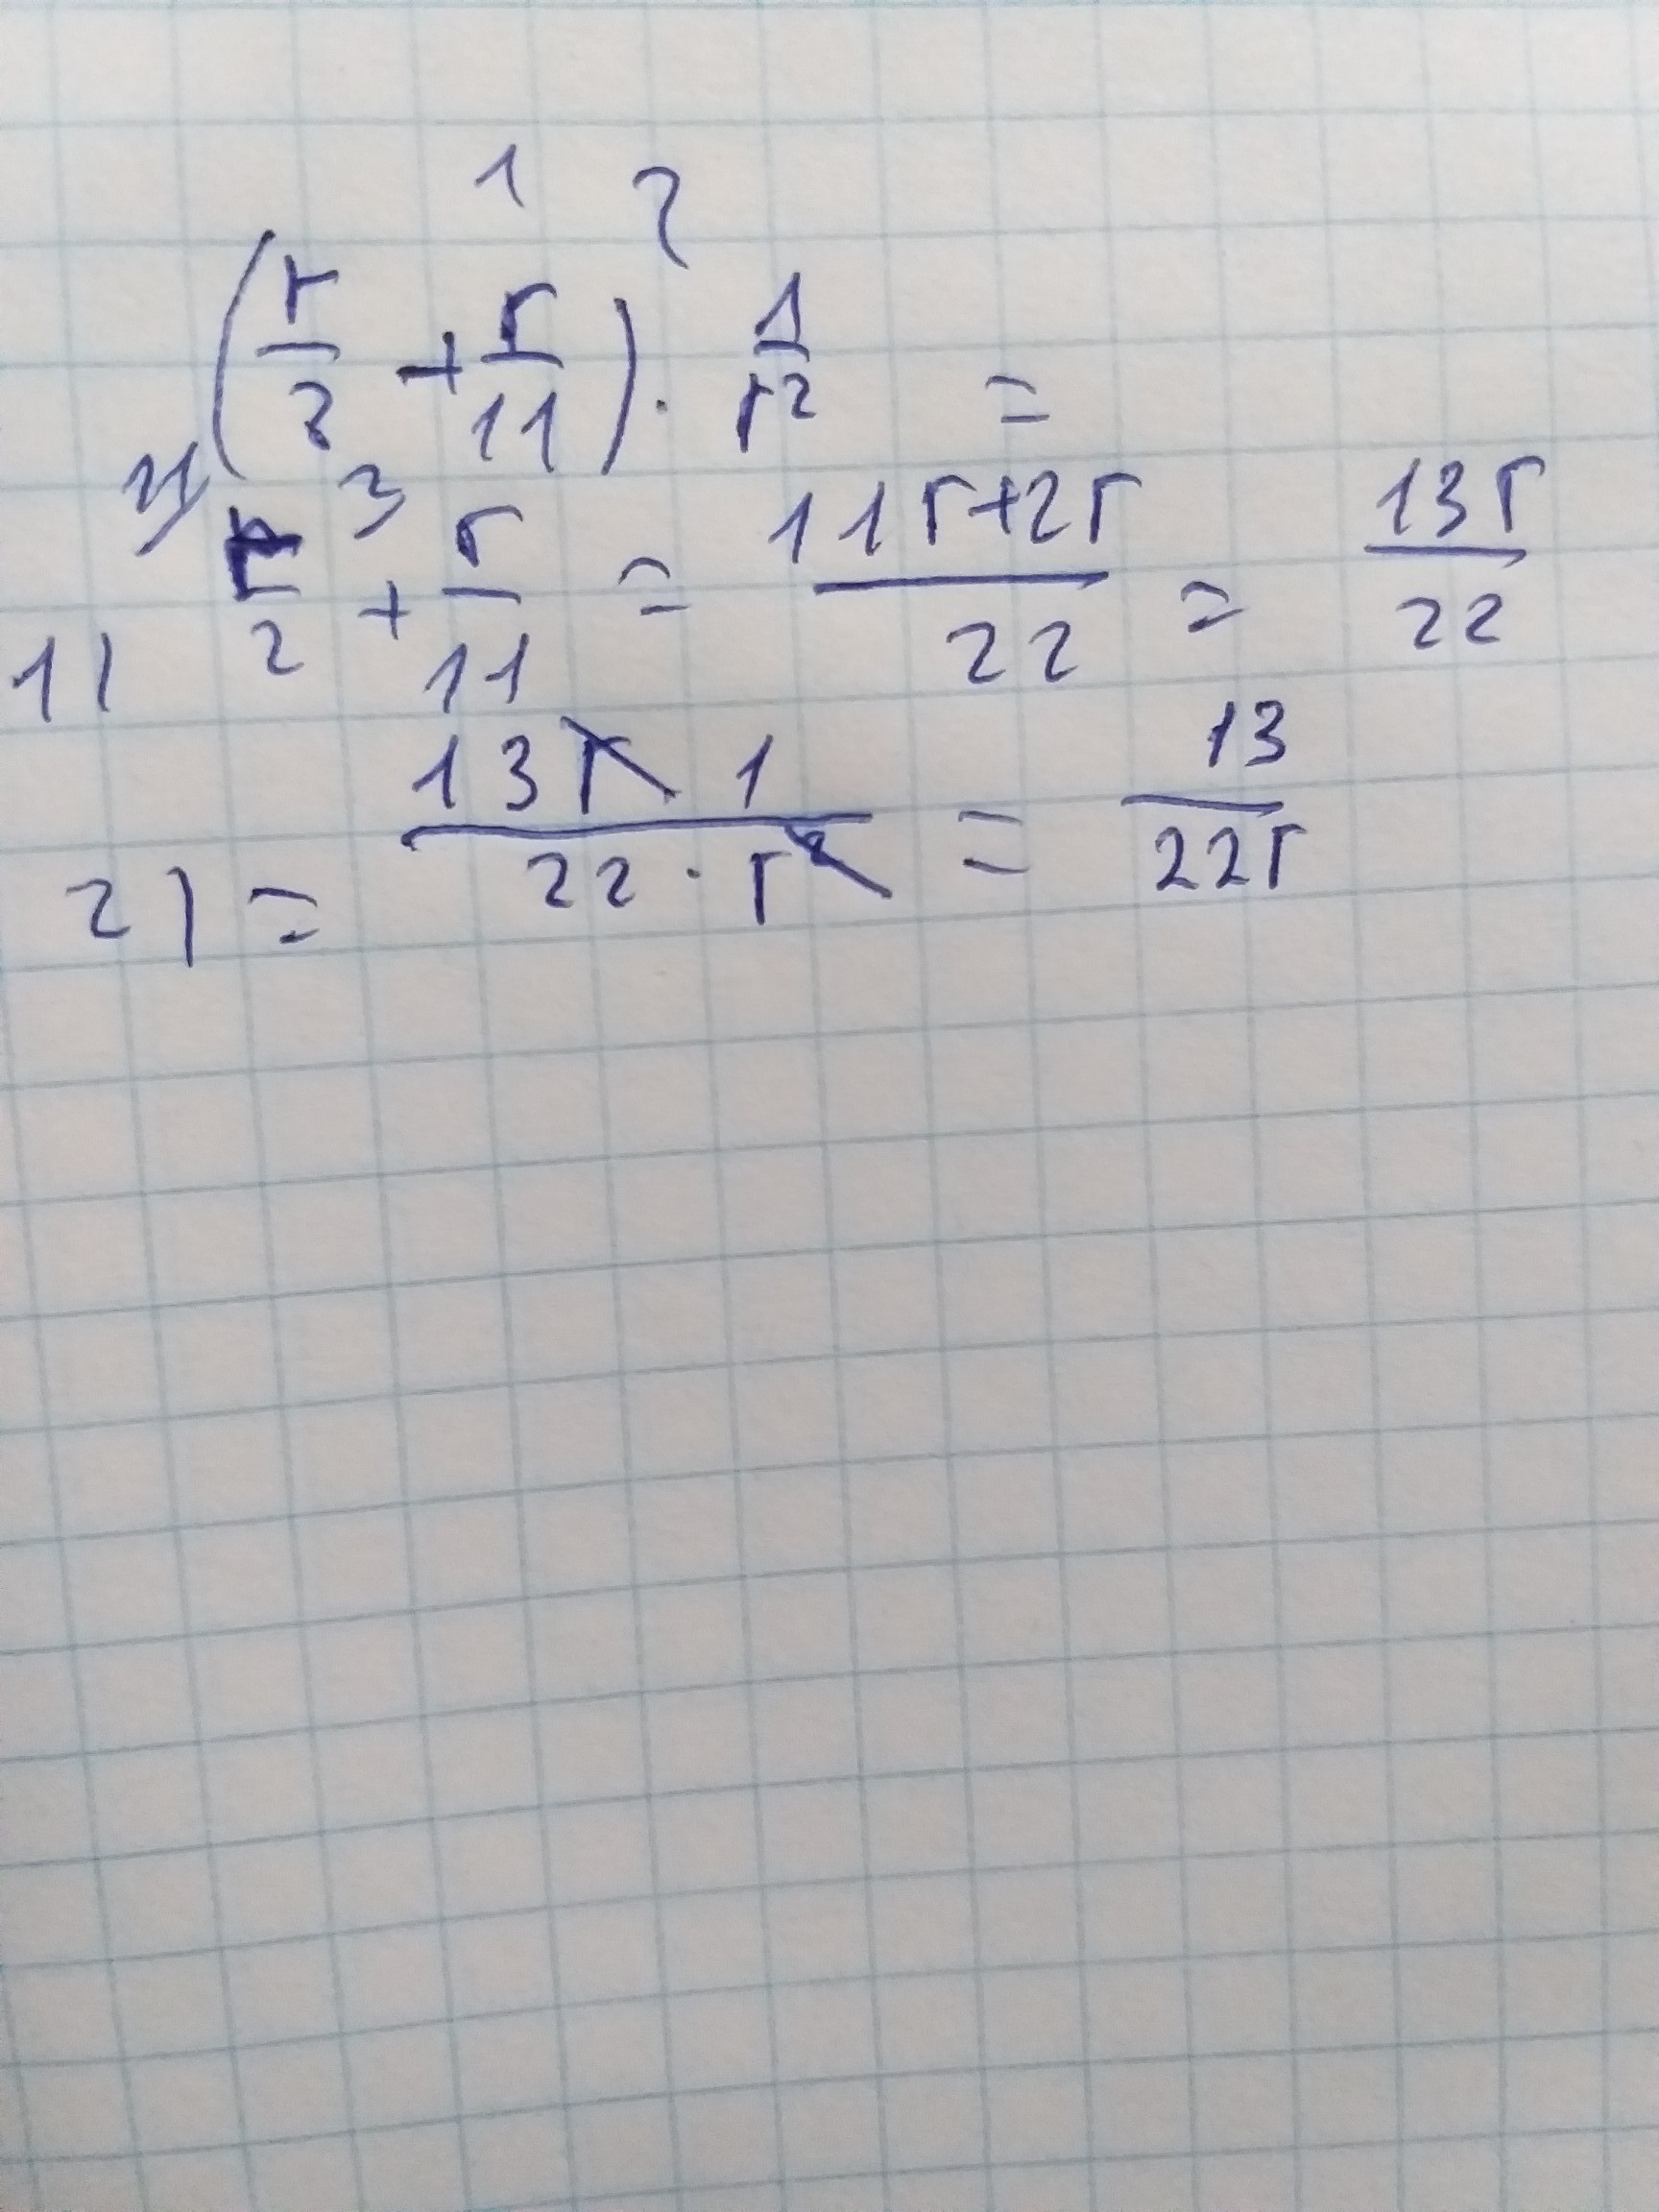 1 2
(r/2 + r/11) · 1/r² =
1) r/2 + r/11 = (11r+2r)/22 = 13r/22
2) = (13r 1)/(22 · r²) = 13/(22r)